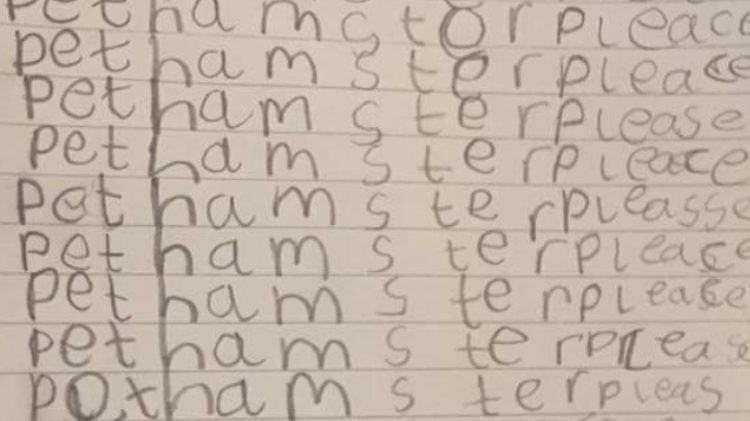 pet hamstor pleace
pet hamster pleace
pet hamster please
pet hamster pleace
pot hamster pleasse
pet hamster please
pet hamster please
pet hamster please
pot hamster pleas